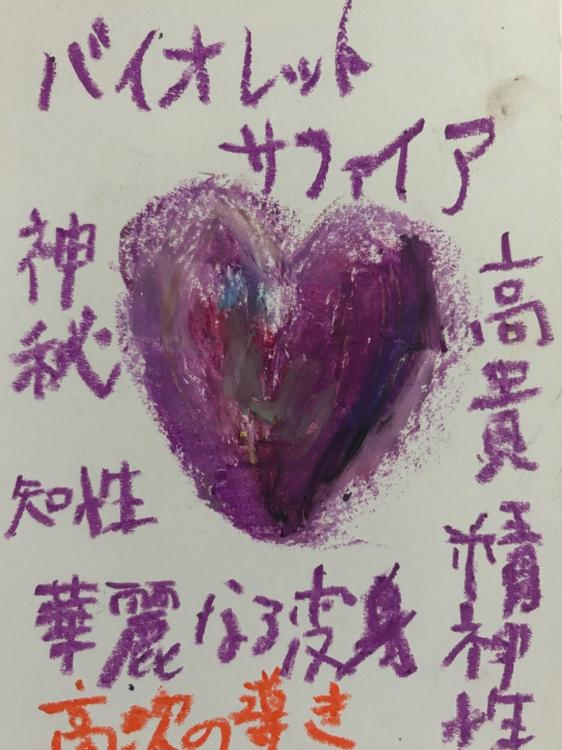 バイオレット
サファイア
神秘
高貴
知性
精神性
華麗なる皮身
高次の導き